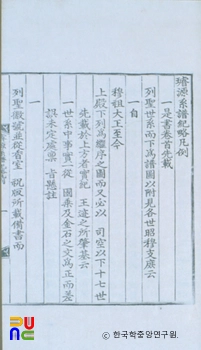 璿源系譜紀略凡例
一是書卷首先載
列聖世系而下爲譜圖以附見各世昭穆支庶云
一自
穆祖大王至今
上殿下列爲繼序之圖而又必以 司空以下十七世
先載於上方者實紀 王迹之所肇基云
一世系中事實從 國乘及金石之文爲正而若
誤未定處稟 旨懸註
一
列聖徽號並從 室 祝版所載備書而
PUNC
ⓒ 한국학중앙연구원.